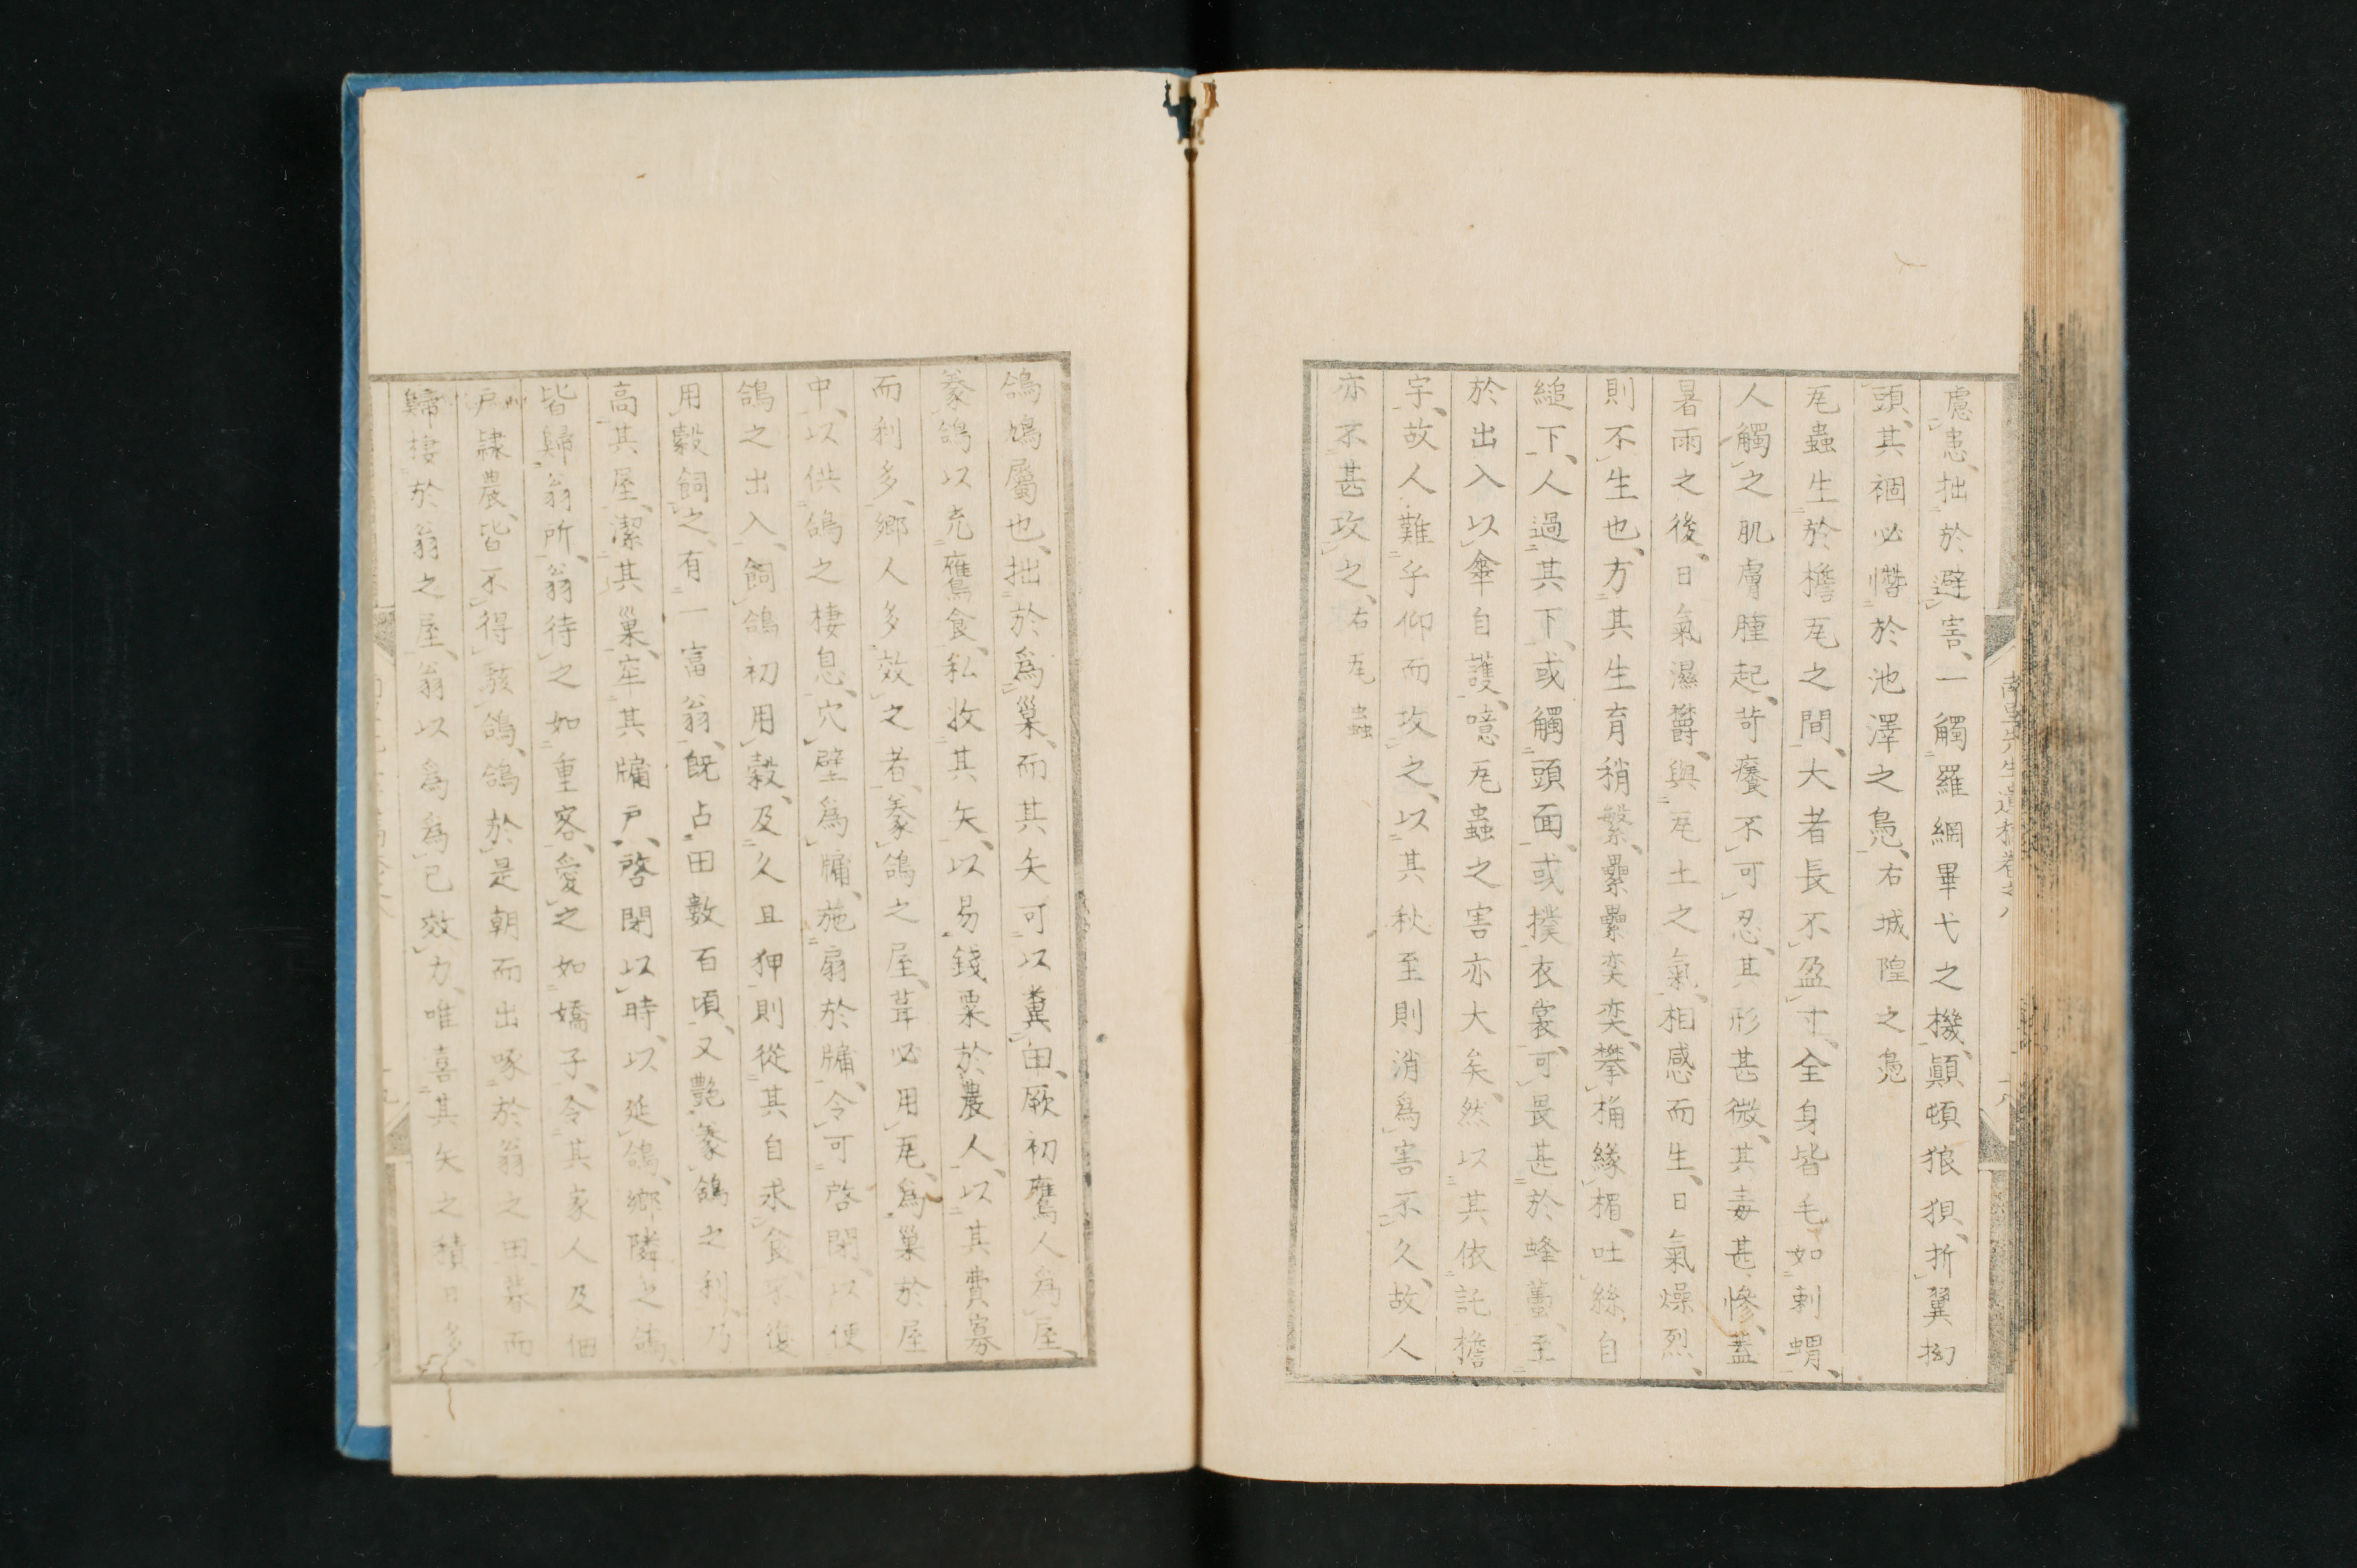 慮患、拙於避害、一觸羅網畢弋之機、顚頓狼狽、折翼拗
頭、其禍必憯於池澤之鳧、右城隍之鳧
瓦蟲生於檐瓦之間、大者長不盈寸、全身皆毛如刺蝟、
人觸之肌膚腫起、苛癢不可忍、其形甚微、其毒甚慘、蓋
暑雨之後、日氣濕欝、與瓦土之氣相感而生、日氣燥烈、
則不生也、方其生育稍繁、纍纍奕奕、攀桷緣楣、吐絲自
縋下、人過其下、或觸頭面、或撲衣裳、可畏甚於蜂蠆、至
於出入以傘自護、噫瓦蟲之害亦大矣、然以其依託檐
宇、故人難乎仰而攻之、以其秋至則消爲害不久、故人
亦不甚攻之、右瓦蟲
南 先生遺稿卷之八
十八
鴿鳩屬也、拙於爲巢、而其矢可以糞田、厥初鷹人爲屋、
豢鴿以充鷹食、私收其矢、以易錢粟於農人、以其費寡
而利多、鄉人多效之者、豢鴿之屋、葺必用瓦、爲巢於屋
中、以供鴿之棲息、穴壁爲牖、施扇於牖、令可啓閉、以便
鴿之出入、飼鴿初用穀、及久且狎則從其自求食、不復
用穀飼之、有一富翁、旣占田數百頃、又艷豢鴿之利、乃
高其屋、潔其巢、牢其牖戶、啓閉以時、以延鴿、鄉隣之鴿、
皆歸翁所、翁待之如重客、愛之如嬌子、令其家人及佃
戶隷農、皆不得駭鴿、鴿於是朝而出啄於翁之田、暮而
歸棲於翁之屋、翁以爲爲己效力、唯喜其矢之積日多、